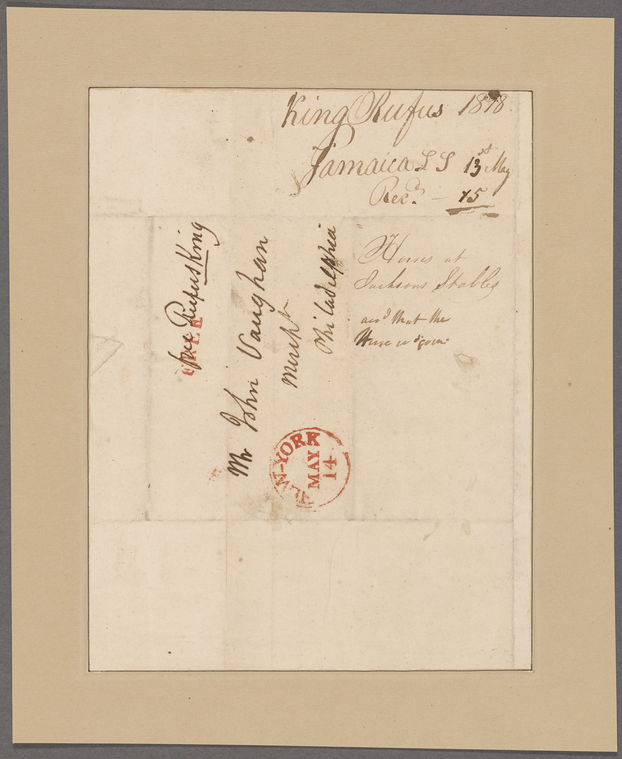 King Rufus 1818.
Jamaica L I 13th May
Recd. — 15
Horses at
Jacksons Stables
and that the
Horse is gone
free Rufus King
FREE
Mr John Vaughan
Mercht
Philadelphia
NEW-YORK
MAY
14